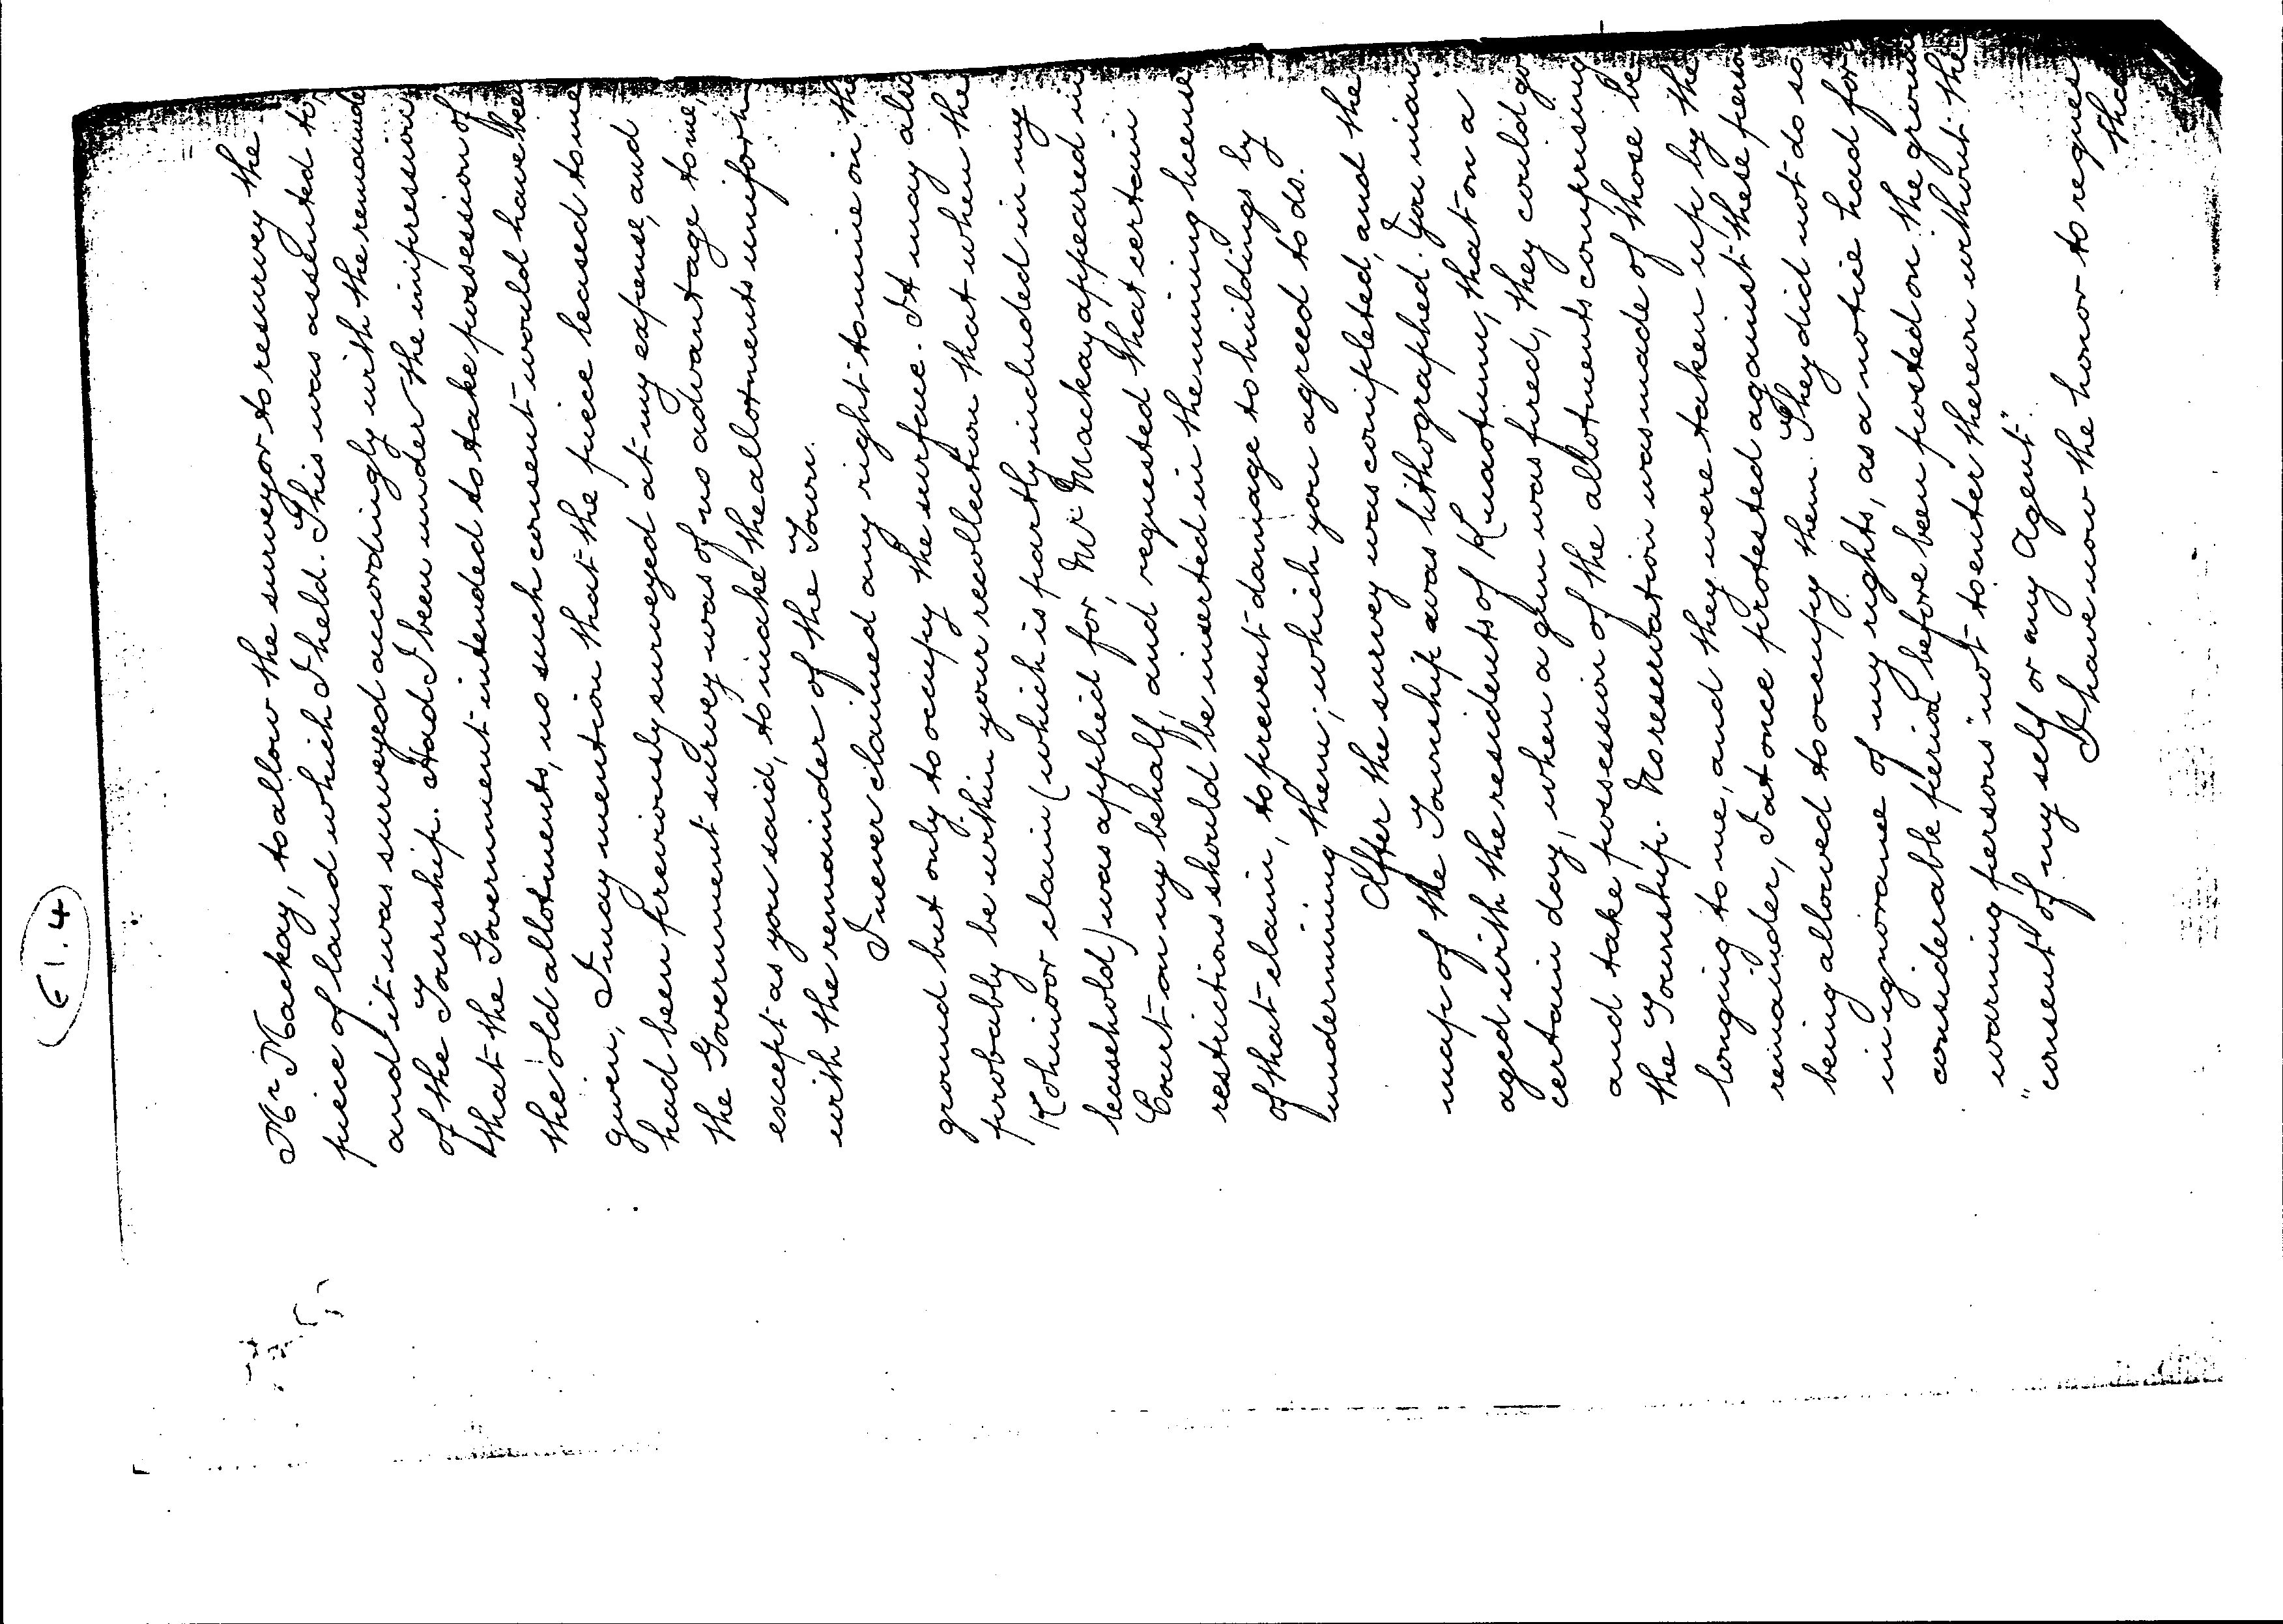 61.4
Mr Mackay, to allow the surveyor to resurvey the
piece of land which I held. This was assented to,
and it was surveyed accordingly with the remainde
of the Township. Had I been under the impression
that the Government intended to take possession of
the old allotments, no such consent would have bee
given, I may mention that the piece leased to me
had been previously surveyed at my expense, and
the Government survey was of no advantage to me,
except as you said, to make the allotments uniform
with the remainder of the Town.
I never claimed any right to mine on the
ground but only to occupy the surface. It may also
probably be within your recollection that when the
Kohinoor claim (which is partly included in my
leasehold) was applied for, Mr Mackay appeared in
Court on my behalf, and requested that certain
restrictions should be inserted in the mining license
of that claim, to prevent damage to buildings by
undermining them; which you agreed to do.
After the survey was completed, and the
map of the Township was lithographed. You man
aged with the residents of Kuaotunu, that on a
certain day, when a gun was fired, they could go
and take possession of the allotments comprising
the Township. No reservation was made of those be
longing to me, and they were taken up by the
remainder, I at once protested against these person
being allowed to occupy them. They did not do so
in ignorance of my rights, as a notice had for
considerable period before been posted on the ground
warning persons "not to enter thereon without the
"consent of my self or my Agent".
I have now the honor to request
that